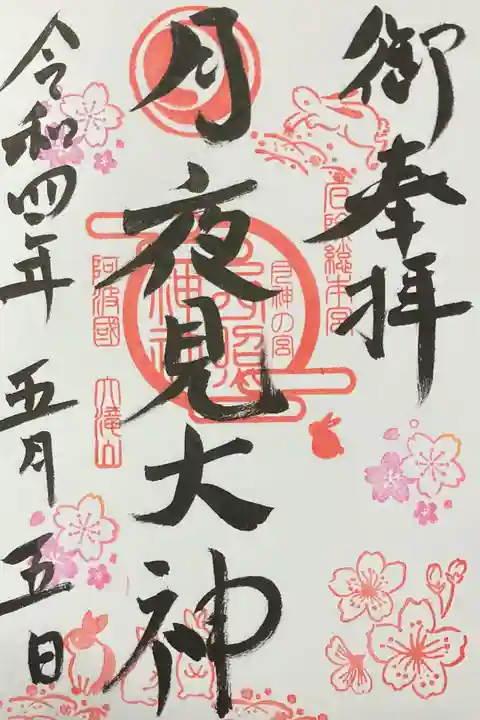 御奉拝
厄除總本宮
月夜見大神
月神の宮
神社
阿波國 六滝山
令和四年 五月 五日